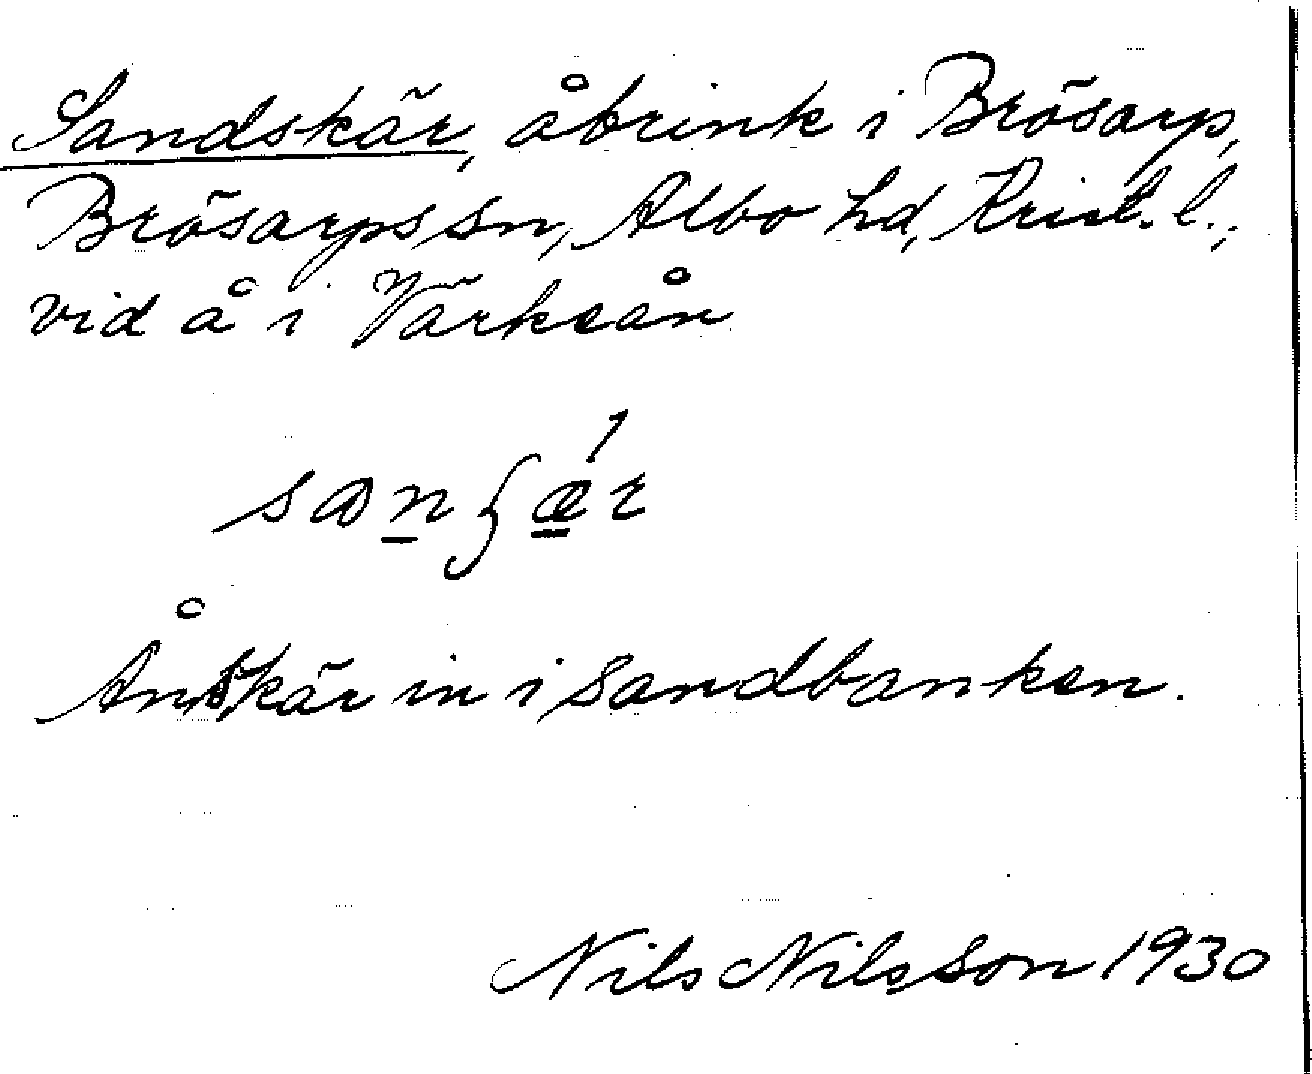 Sandskär, åbrink i Brösarp,
Brösarps sn, Albo hd, Krist. l.,
vid å i Värksån
Ån skär in i sandbanken.
Nils Nilsson 1930